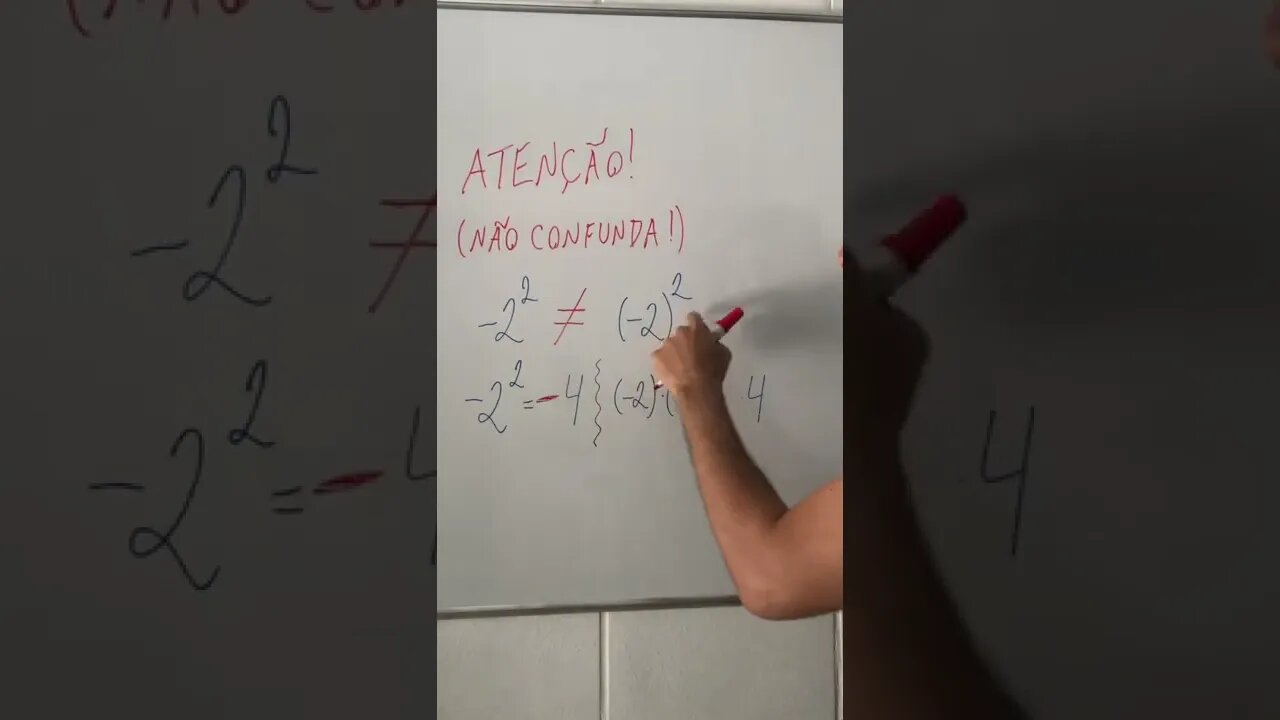 ATENÇÃO!
(NÃO CONFUNDA!)
-2² ≠ (-2)²
-2² = -4 { (-2)·( 4